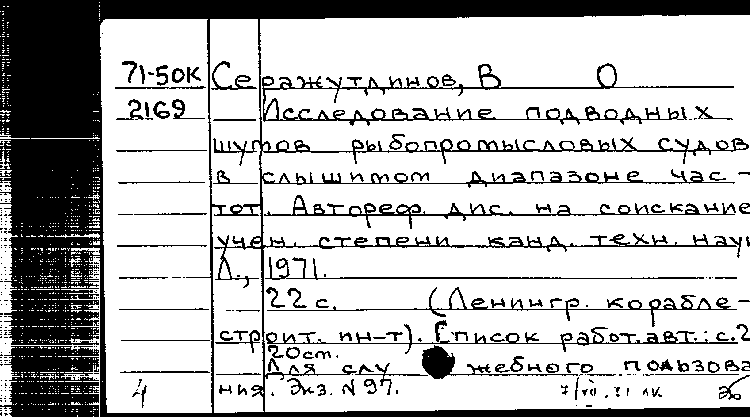 71-50К Серажутдинов, В О
2169 Исследование подводных
шумов рыбопромысловых судов
в слышитом диапазоне час-
тот. Автореф. дис. на соискание
учен. степени канд. техн. наук
Л., 1971.
22 с. (Ленингр. корабле-
строит. ин-т). Список работ. авт.: с. 2
20 ст.
Для служебного пользова
4 ния. Экз. N 97.